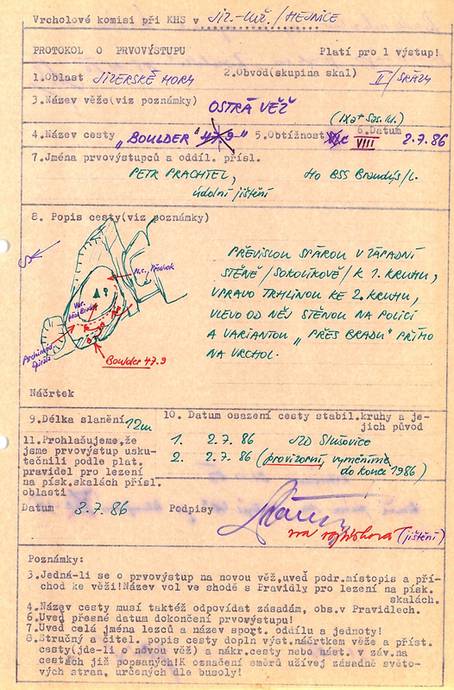 Vrcholové komisi při KHS v JIZ.-LUŽ./HEJNICE
PROTOKOL O PRVOVÝSTUPU Platí pro 1 výstup!
1.Oblast JIZERSKÉ HORY 2.Obvod(skupina skal) II/
3.Název věže(viz poznámky) OSTRÁ VĚŽ
4.Název cesty „BOULDER 47.9" 5.Obtížnost VIII 6.Datum 2.7.86
7.Jména prvovýstupců a oddíl. přísl.
PETR PRACHTEL, Ho BSS Brandýs/L.
údolní jištění
8. Popis cesty(viz poznámky)
PŘEVISLOU SPÁROU V ZÁPADNÍ
STĚNĚ/SOKOLÍKOVĚ/K 1. KRUHU,
VPRAVO TRHLINOU KE 2. KRUHU,
VLEVO OD NĚJ STĚNOU NA POLICI
A VARIANTOU „PŘES BRADU" PŘÍMO
NA VRCHOL.
Boulder 47.9
Náčrtek
9.Délka slanění 12m 10. Datum osazení cesty stabil.kruhy a je-
jich původ
11.Prohlašujeme,že
jsme prvovýstup usku-
tečnili podle plat.
pravidel pro lezení
na písk.skalách přísl.
oblasti
1. 2.7.86 JZD Slušovice
2. 2.7.86 (provizorní, vyměníme
do konce 1986)
Datum 8.7.86 Podpisy
(jištění)
Poznámky:
3.Jedná-li se o prvovýstup na novou věž,uveď podr.místopis a pří-
chod ke věži!Název vol ve shodě s Pravidly pro lezení na písk.
skalách.
4.Název cesty musí taktéž odpovídat zásadám, obs.v Pravidlech.
6.Uveď přesné datum dokončení prvovýstupu!
7.Uveď celá jména lezců a název sport. oddílu a jednoty!
8.Stručný a čitel. popis cesty doplň výst.náčrtkem věže a příst.
cesty(jde-li o novou věž) a nákr.cesty nebo míst. v záv.na
cestách již popsaných!K označení směrů užívej zásadně světo-
vých stran, určených dle busoly!